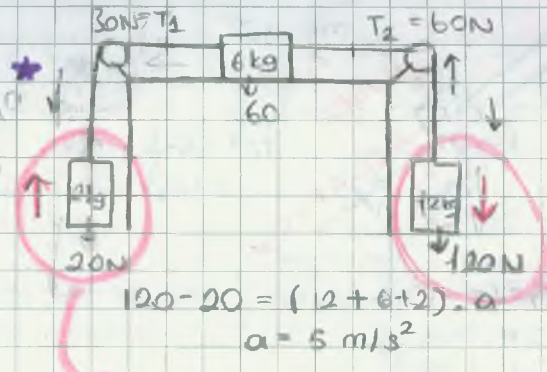 30N = T1
T2 = 60N
6 kg
60
2kg
12kg
20N
120N
120-20 = (12+6+2). a
a = 5 m/s²